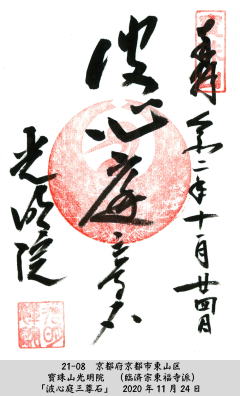 奉拝
令二年十一月廿四日
波心庭三尊石
光明院
21-08 京都府京都市東山区
寶珠山光明院 (臨済宗東福寺派)
「波心庭三尊石」 2020年11月24日